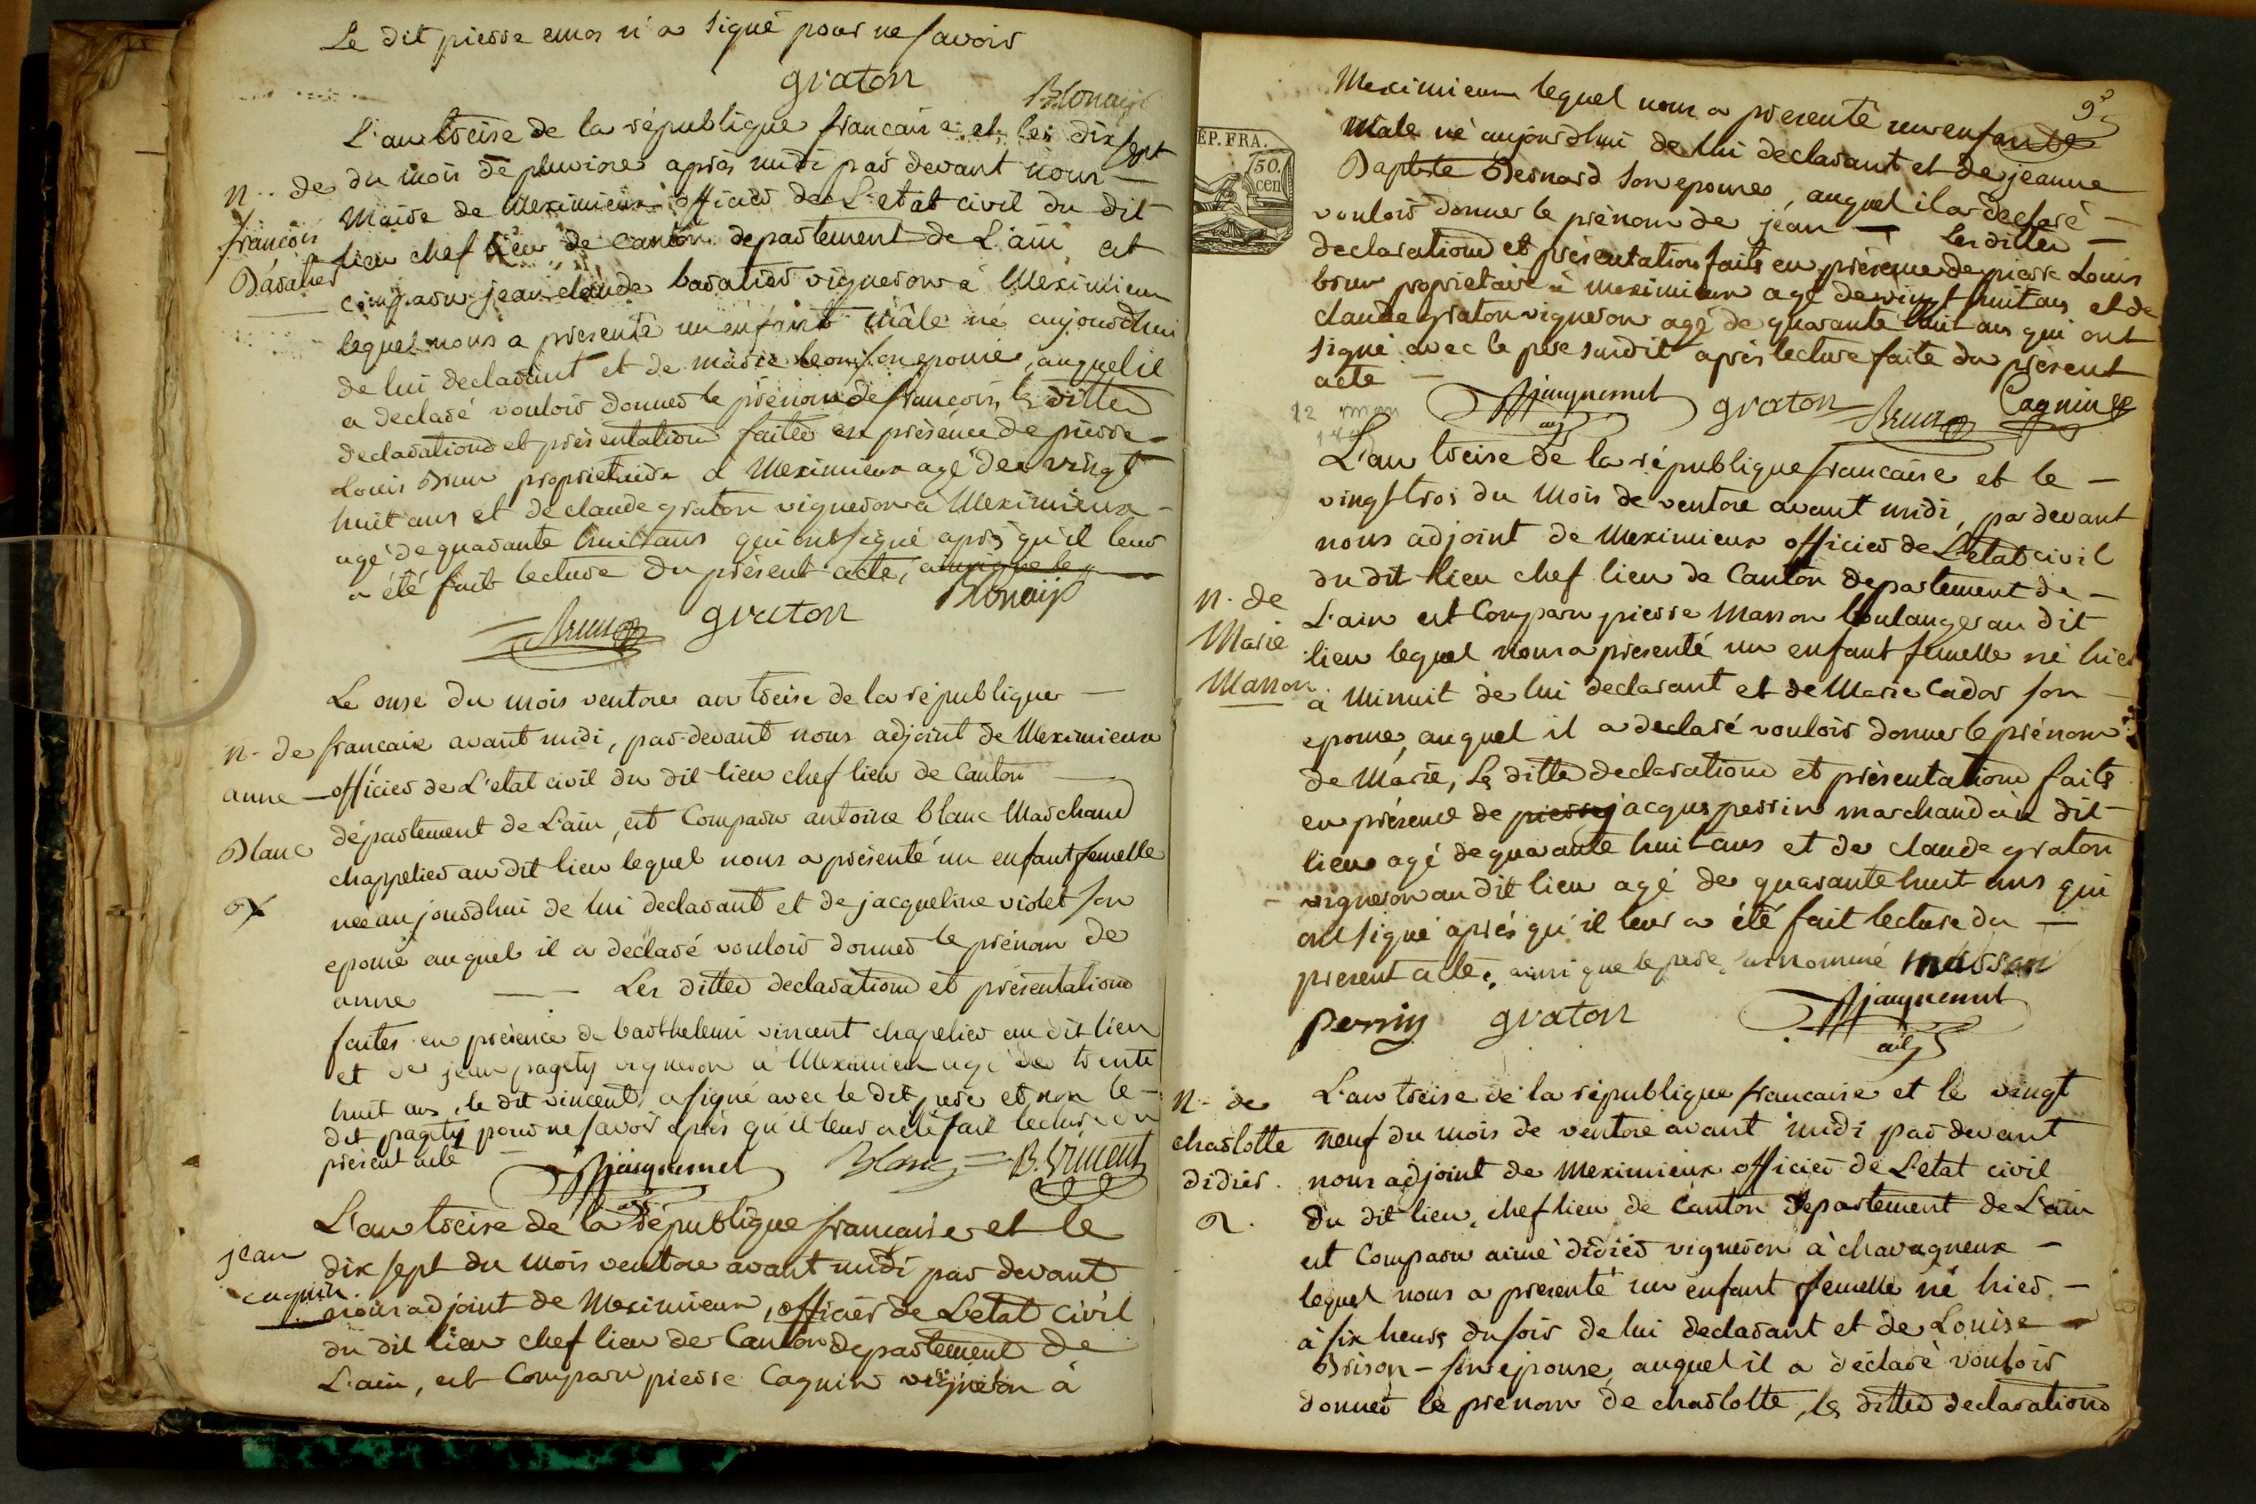 Le dit pierre n'a signé pour ne savoir
graton
Blonay
L'an treise de la république francaise et les dix sept
n. de du mois de pluviose après midi par devant nous
Maire de Meximieux officier de L'etat civil du dit
françois
lieu chef lieu de canton departement de L'ain est
Baratier
comparu jean claude baratier vigneron à Meximieux
lequel nous a presenté un enfant mâle né aujourdhui
de lui declarant et de marie son epouse, auquel il
a declaré vouloir donner le prénom de francois, les dittes
declarations et présentations faites en présence de pierre
Louis Brun proprietaire à Meximieux agé de vingt
huit ans et de claude graton vigneron à Meximieux
agé de quarante huit ans qui ont signé après qu'il leur
a été fait lecture du present acte,
Brun graton Blonay
Le onse du mois ventose an treise de la république
n. de francaise avant midi, par devant nous adjoint de Meximieux
anne officier de L'etat civil du dit lieu chef lieu de Canton
Blanc département de L'ain, est Comparu antoine blanc Marchand
chappelier au dit lieu lequel nous a présenté un enfant femelle
née aujourdhui de lui declarant et de jacqueline violet son
epouse auquel il a declaré vouloir donner le prénom de
anne Les dittes declarations et présentations
faites en présence de barthelemi vincent chapelier au dit lieu
et de jean pagety vigneron à Meximieux agé de trente
huit ans, le dit vincent a signé avec le dit pere et non le
dit pagety pour ne savoir après qu'il leur a été fait lecture du
présent acte
jacquemet Blanc B. Vincent
adj
L'an treise de la république francaise et le
jean
dix sept du mois ventose avant midi par devant
cagnin
nous adjoint de Meximieux, officier de L'etat civil
du dit lieu chef lieu de Canton departement de
L'ain, est Comparu pierre Cagnin vigneron à
EP. FRA.
50.
cen
Meximieux lequel nous a presenté un enfant
Male né aujourdhui de lui declarant et de jeanne
Baptiste Bernard son epouse, auquel il a declaré
vouloir donner le prénom de jean Les dittes
declarations et présentations faits en présence de pierre Louis
brun proprietaire à meximieux agé de vingt huit ans et de
claude graton vigneron agé de quarante huit ans qui ont
signé avec le pere susdit après lecture faite du présent
acte
jacquemet graton Brun Cagnin
adj
L'an treise de la république francaise et le
vingt trois du Mois de ventose avant midi, par devant
nous adjoint de Meximieux officier de L'etat civil
du dit lieu chef lieu de Canton departement de
n. de L'ain est Comparu pierre Masson boulanger au dit
Marie lieu lequel nous a présenté un enfant femelle né hier
Masson à Minuit de lui declarant et de Marie Cador son
epouse, auquel il a declaré vouloir donner le prénom
de Marie, Les dittes declarations et présentations faits
en présence de pierre jacques perrin marchand au dit
lieu agé de quarante huit ans et de claude graton
vigneron au dit lieu agé de quarante huit ans qui
ont signé après qu'il leur a été fait lecture du
present acte, ainsi que le pere surnommé masson
perrin graton jacquemet
adj
n. de L'an treise de la république francaise et le vingt
charlotte neuf du mois de ventose avant midi par devant
didier. nous adjoint de Meximieux officier de L'etat civil
du dit lieu, chef lieu de Canton departement de L'ain
est Comparu aimé didier vigneron à chavagneux
lequel nous a presenté un enfant femelle né hier
à six heures du soir de lui declarant et de Louise
Brison son epouse, auquel il a déclaré vouloir
donner le prenom de charlotte, les dittes declarations